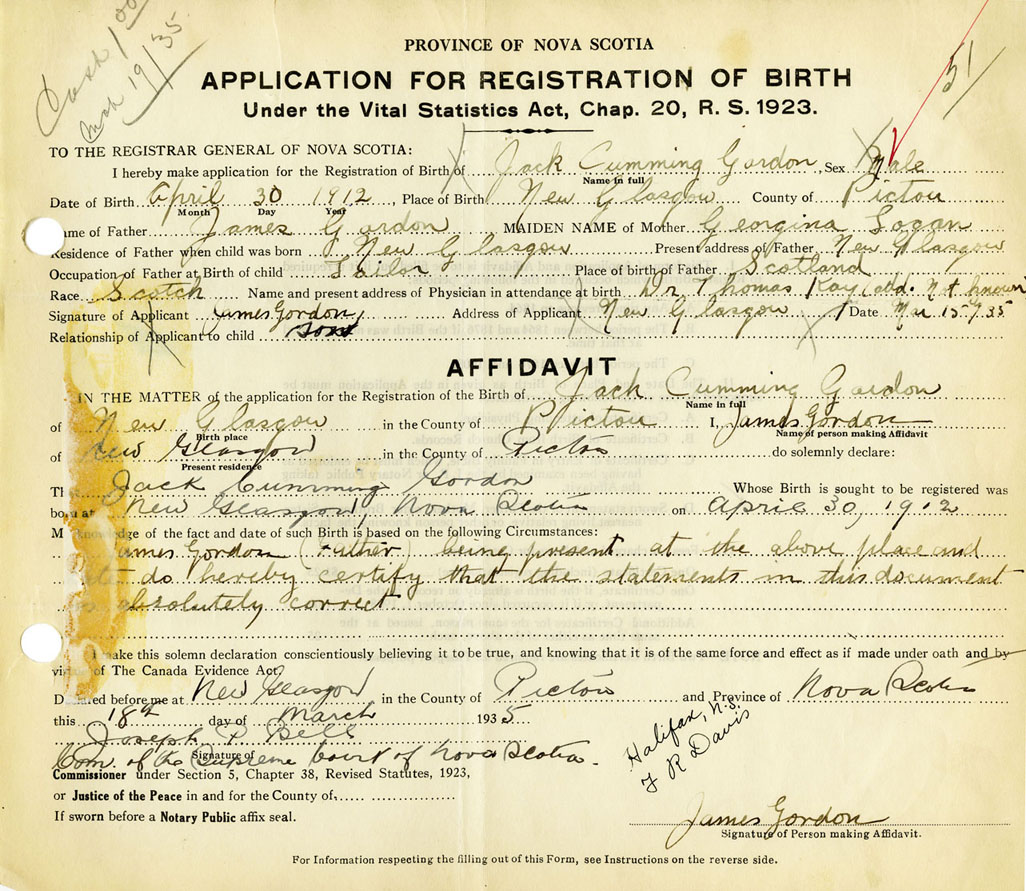 Cash 1.00
Mch 19/35
51
PROVINCE OF NOVA SCOTIA
APPLICATION FOR REGISTRATION OF BIRTH
Under the Vital Statistics Act, Chap. 20, R. S. 1923.
TO THE REGISTRAR GENERAL OF NOVA SCOTIA:
I hereby make application for the Registration of Birth of Jack Cumming Gordon, Sex Male
Name in full
Date of Birth April 30 1912, Place of Birth New Glasgow County of Pictou
Month Day Year
ame of Father James Gordon MAIDEN NAME of Mother Georgina Logan
Residence of Father when child was born New Glasgow Present address of Father New Glasgow
Occupation of Father at Birth of child Tailor Place of birth of Father Scotland
Race Scotch Name and present address of Physician in attendance at birth Dr Thomas Kay (add. not known
Signature of Applicant James Gordon, Address of Applicant New Glasgow Date Mar 15/35
Relationship of Applicant to child son
AFFIDAVIT
IN THE MATTER of the application for the Registration of the Birth of Jack Cumming Gordon
Name in full
of New Glasgow in the County of Pictou I, James Gordon
Birth place Name of person making Affidavit
of New Glasgow in the County of Pictou do solemnly declare:
Present residence
Th Jack Cumming Gordon Whose Birth is sought to be registered was
born at New Glasgow, Nova Scotia on April 30, 1912
M knowledge of the fact and date of such Birth is based on the following Circumstances:
James Gordon (Father) being present at the above place and
do hereby certify that the statements in this document
absolutely correct.
I make this solemn declaration conscientiously believing it to be true, and knowing that it is of the same force and effect as if made under oath and by
vir of The Canada Evidence Act,
Declared before me at New Glasgow in the County of Pictou and Province of Nova Scotia
this 18th day of March 1935
Joseph P Bell
Signature of
Com. of the Supreme Court of Nova Scotia.
Halifax, N.S.
R Davis
Commissioner under Section 5, Chapter 38, Revised Statutes, 1923,
or Justice of the Peace in and for the County of
If sworn before a Notary Public affix seal.
James Gordon
Signature of Person making Affidavit.
For Information respecting the filling out of this Form, see Instructions on the reverse side.